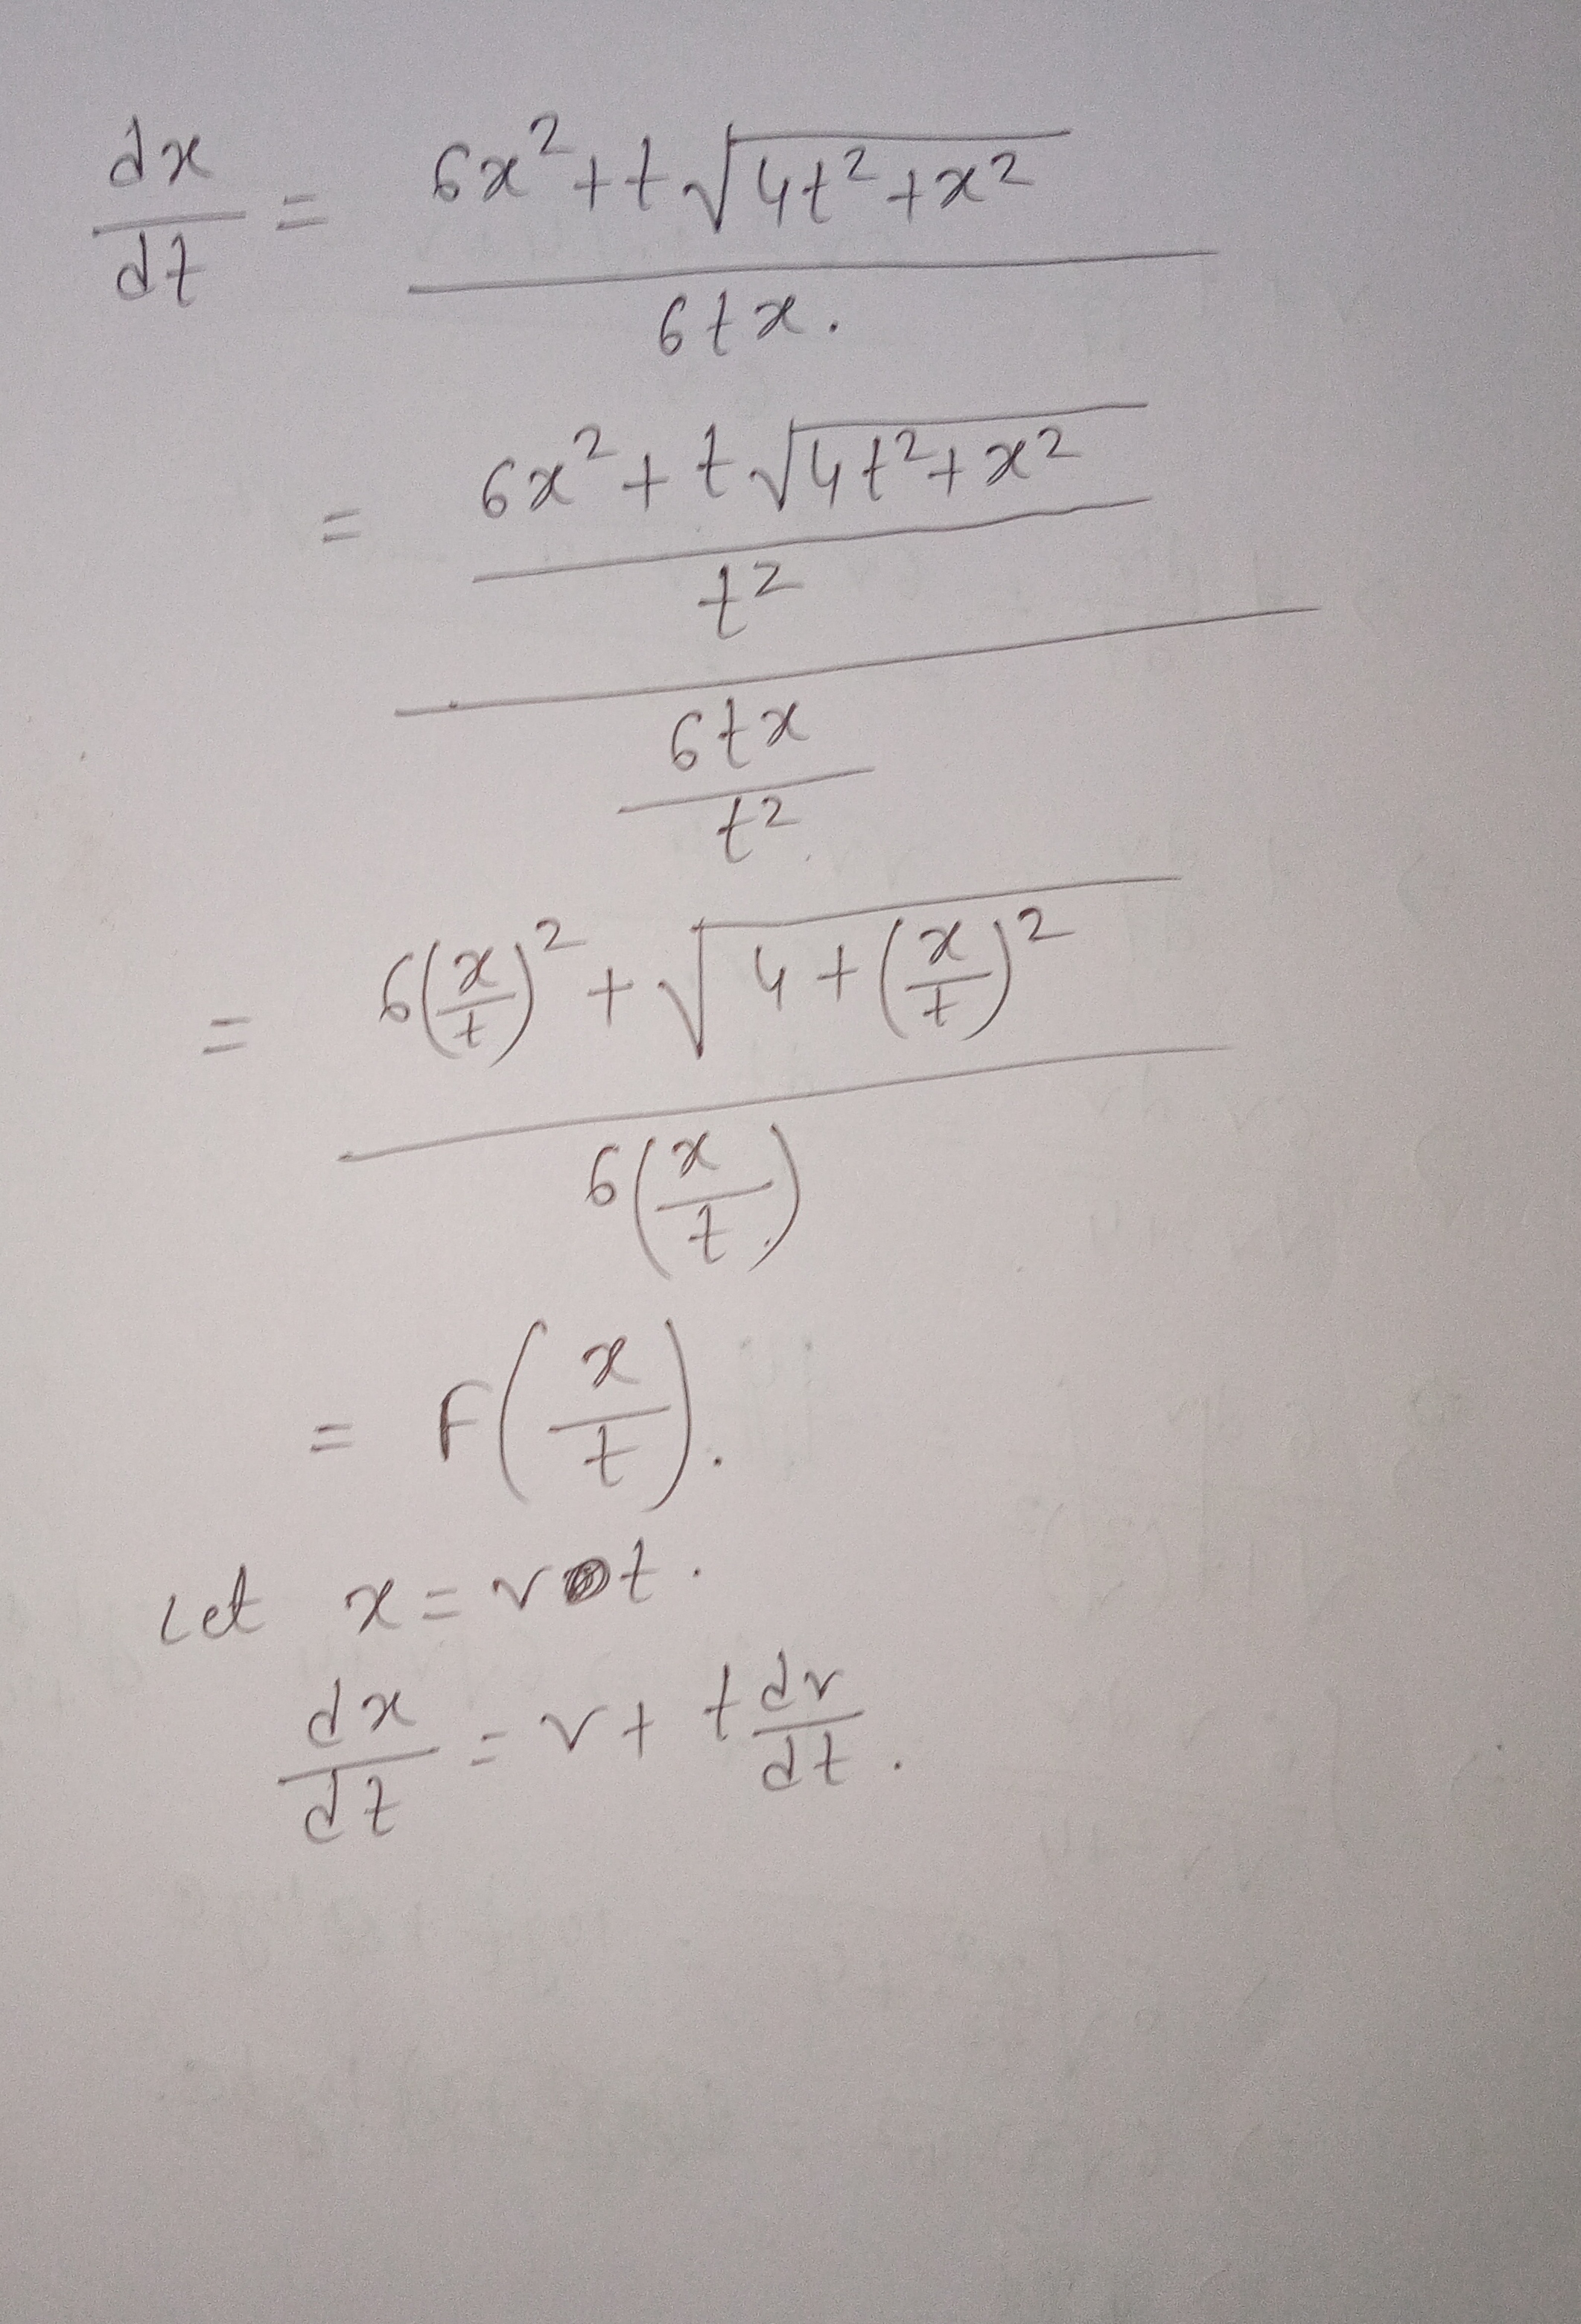 dx/dt = (6x² + t√(4t² + x²)) / (6tx).
= ((6x² + t√(4t² + x²)) / t²) / ((6tx) / t²)
= (6(x/t)² + √(4 + (x/t)²)) / (6(x/t))
= F(x/t).
Let x = vt.
dx/dt = v + t dv/dt.